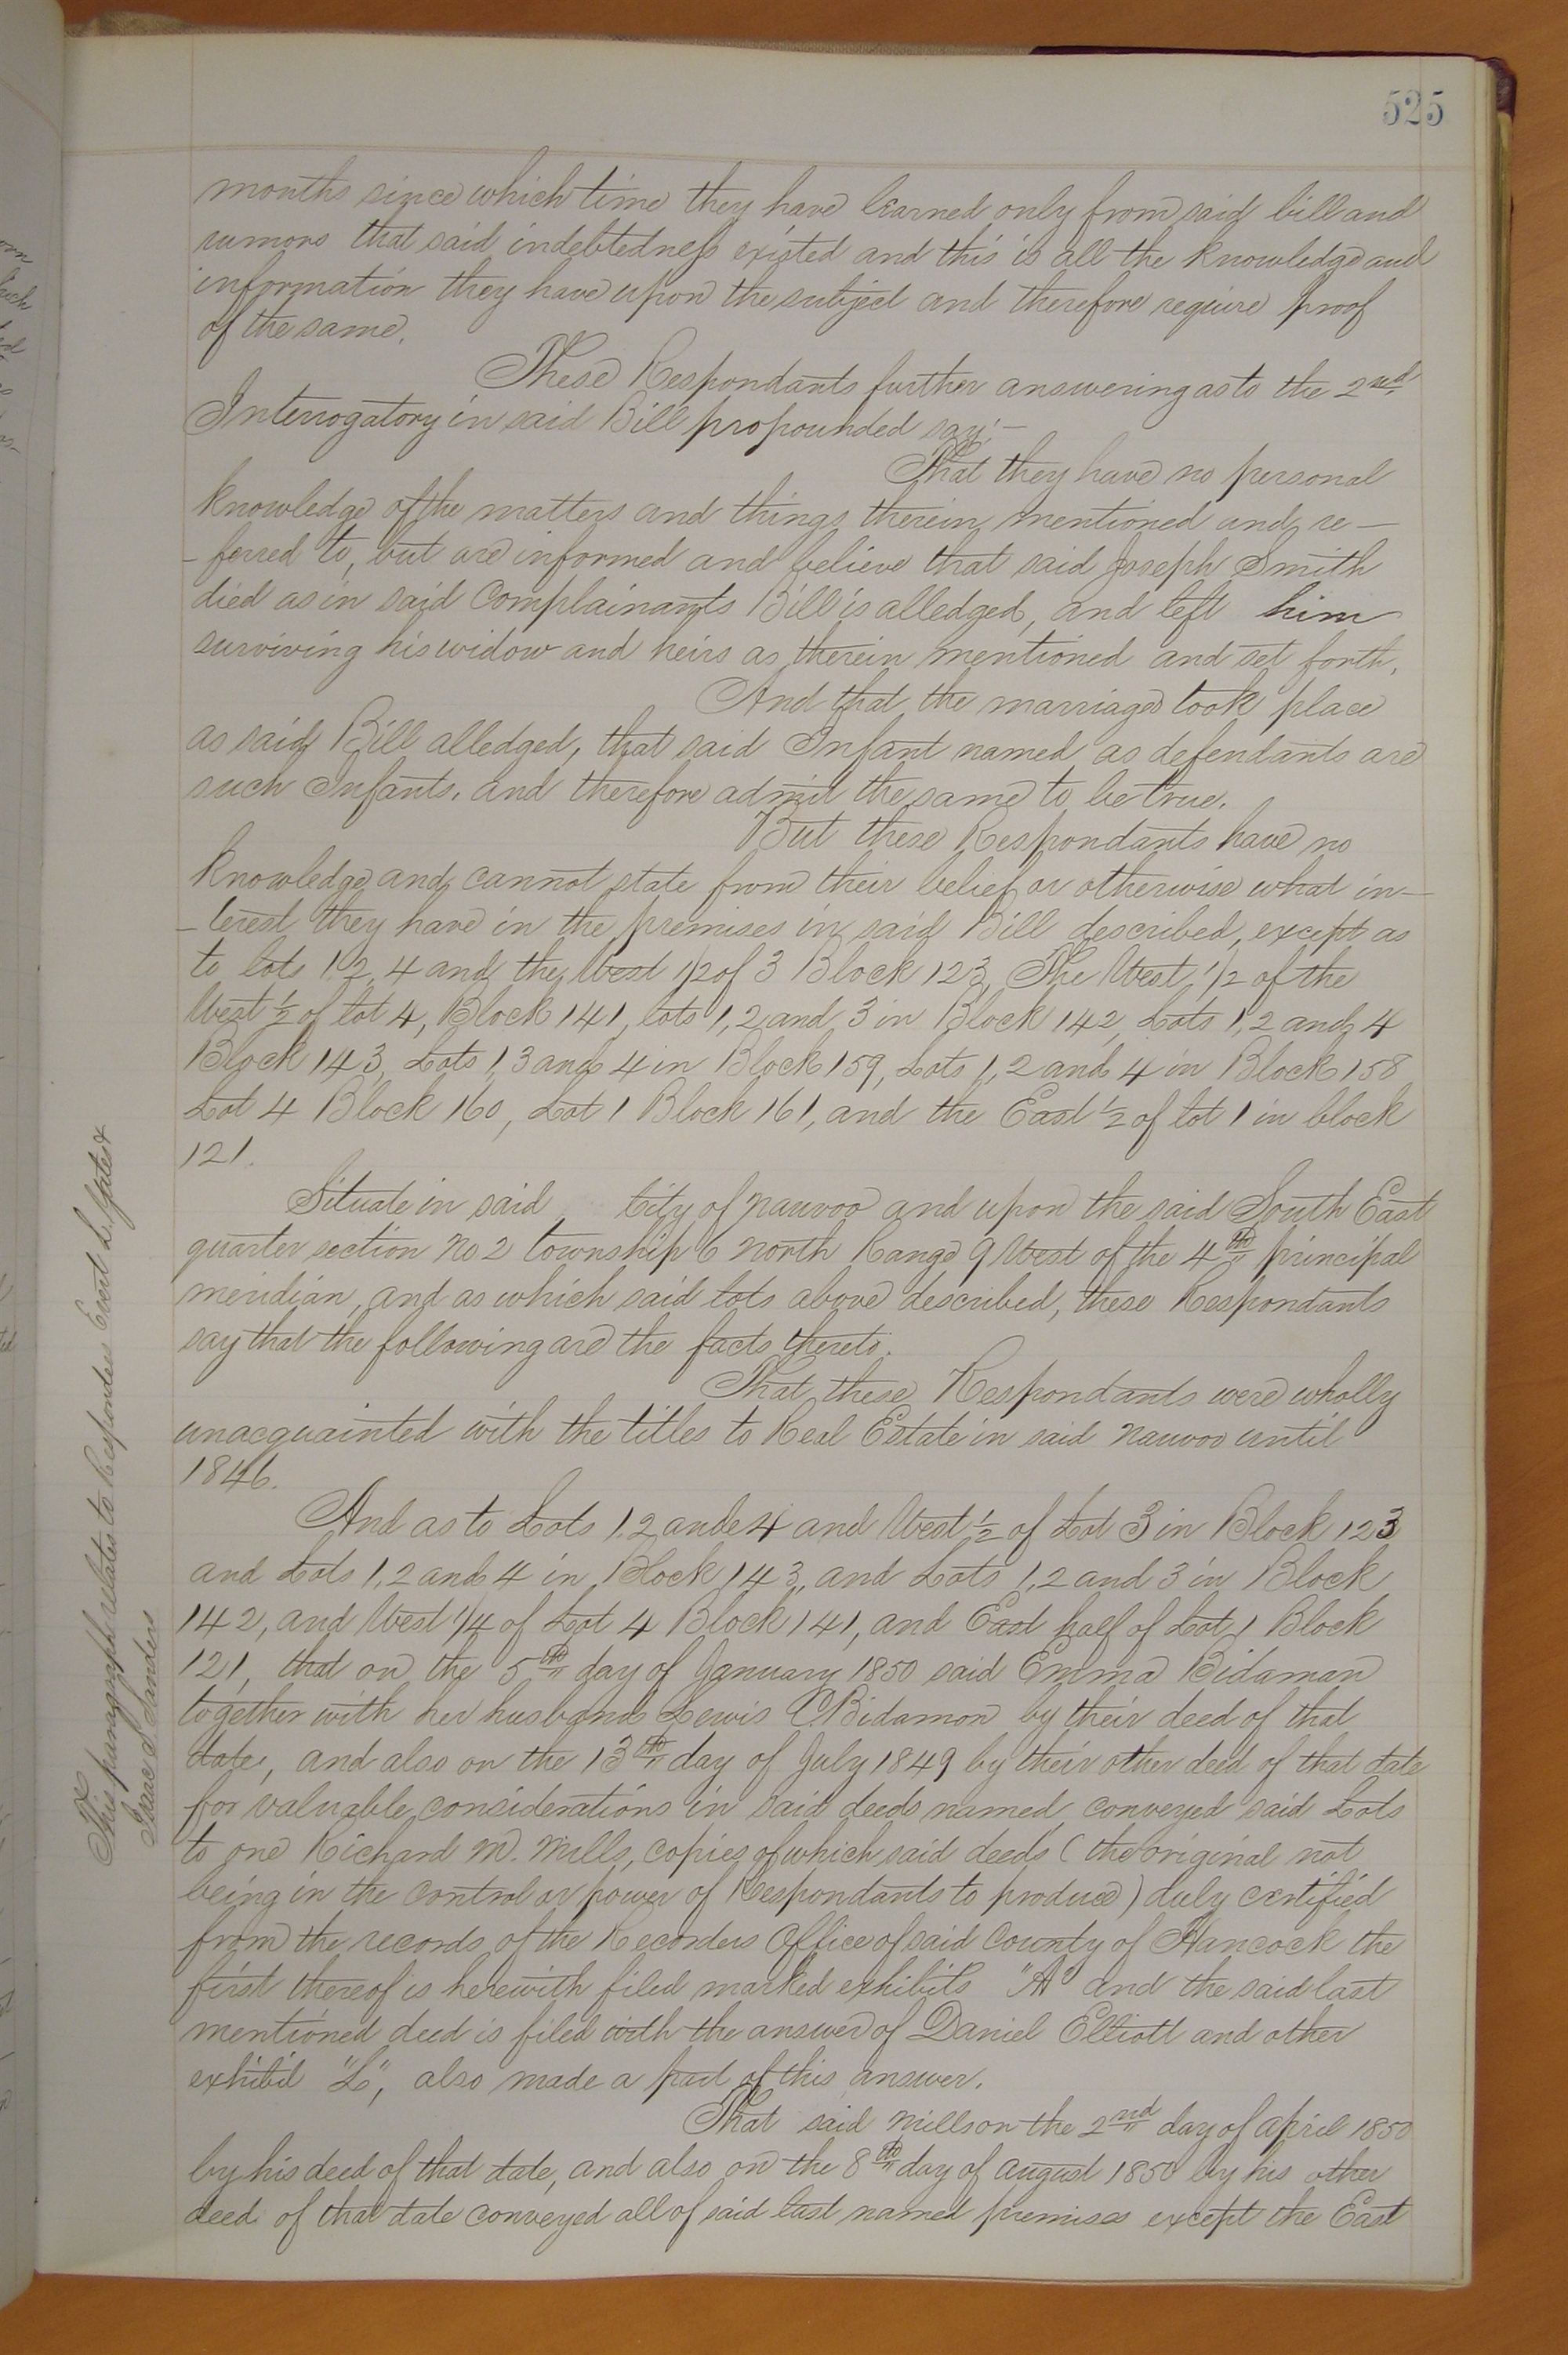 525
months since which time they have learned only from said bill and
rumors that said indebtedness existed and this is all the knowledge and
information they have upon the subject and therefore require proof
of the same.
These Respondants further answering as to the 2nd
Interrogatory in said Bill propounded say:—
That they have no personal
knowledge of the matters and things therein mentioned and re—
—ferred to, but are informed and believe that said Joseph Smith
died as in said Complainants Bill is alledged, and left him
surviving his widow and heirs as therein mentioned and set forth.
And that the marriage took place
as said Bill alledged, that said Infant named as defendants are
such Infants. and therefore admit the same to be true.
But these Respondants have no
knowledge and cannot state from their belief or otherwise what in—
—terest they have in the premises in said Bill described, except as
to lots 1.2, 4 and the West 1/2 of 3 Block 123, The West 1/2 of the
West 1/2 of lot 4, Block 141, lots 1, 2 and 3 in Block 142, Lots 1, 2 and 4
Block 143, Lots 1, 3 and 4 in Block 159, Lots 1, 2 and 4 in Block 158
Lot 4 Block 160, Lot 1 Block 161, and the East 1/2 of lot 1 in block
121.
Situate in said City of Nauvoo and upon the said South East
quarter section No 2 township 6 North Range 9 West of the 4th principal
meridian, and as which said lots above described, these Respondants
say that the following are the facts thereto.
That these Respondants were wholly
unacquainted with the titles to Real Estate in said Nauvoo until
1846.
And as to Lots 1.2 and 4 and West 1/2 of Lot 3 in Block 123
and Lots 1, 2 and 4 in Block 143, and Lots 1, 2 and 3 in Block
142, and West 1/4 of Lot 4 Block 141, and East half of Lot 1 Block
121, that on the 5th day of January 1850 said Emma Bidaman
together with her husband Lewis C. Bidamon by their deed of that
date, and also on the 13th day of July 1849 by their other deed of that date
for valuable considerations in said deeds named, conveyed said Lots
to one Richard M. Mills, copies of which said deeds (the original not
being in the control or power of Respondants to produce) duly certified
from the records of the Recorders Office of said County of Hancock the
first thereof is herewith filed marked exhibits "A" and the said last
mentioned deed is filed with the answer of Daniel Elliott and other
exhibit also made a part of this answer.
That said Mills on the 2nd day of April 1850
by his deed of that date, and also on the 8th day of August 1850 by his other
deed of that date conveyed all of said last named premises except the East
This paragraph relates to Respondees
Isaac S. Sanders